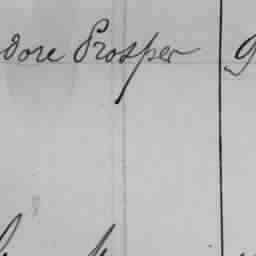 dore Prosper 9